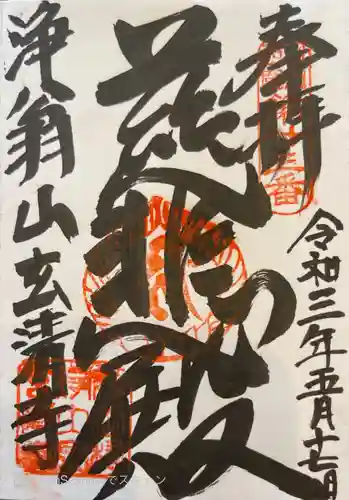 奉拝
令和三年五月十七日
慈悲殿
浄翁山玄清寺